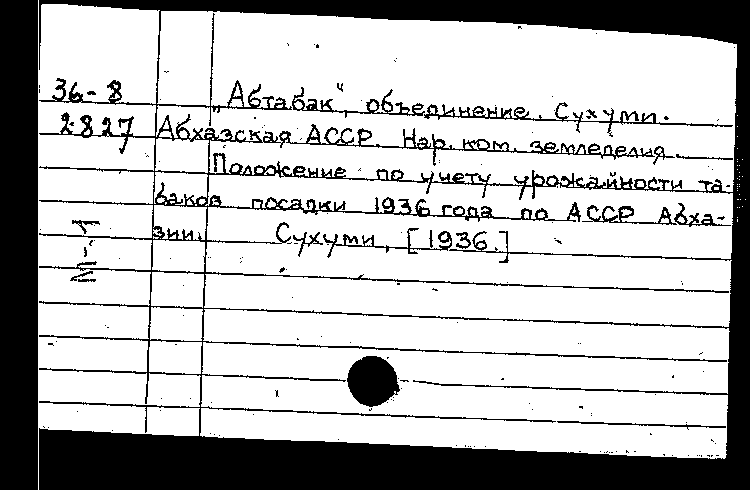 36-8 „Абтабак“, объединение. Сухуми.
2827 Абхазская АССР. Нар. ком. земледелия.
Положение по учету урожайности та-
баков посадки 1936 года по АССР Абха-
зии. Сухуми, [1936.]